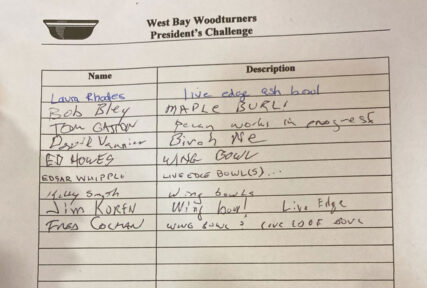 West Bay Woodturners
President's Challenge
Name Description
Laura Rhodes live edge ash bowl
Bob Bley MAPLE BURL
TOM GASTON Pecan works in progress
Vannier Birch
ED HOWES WING BOWL
EDGAR WHIPPLE LIVE EDGE BOWL(S)...
Smyth Wing bowls
Jim KOREN Wing bowl Live Edge
FRED COLMAN WING BOWL & LIVE EDGE BOWL